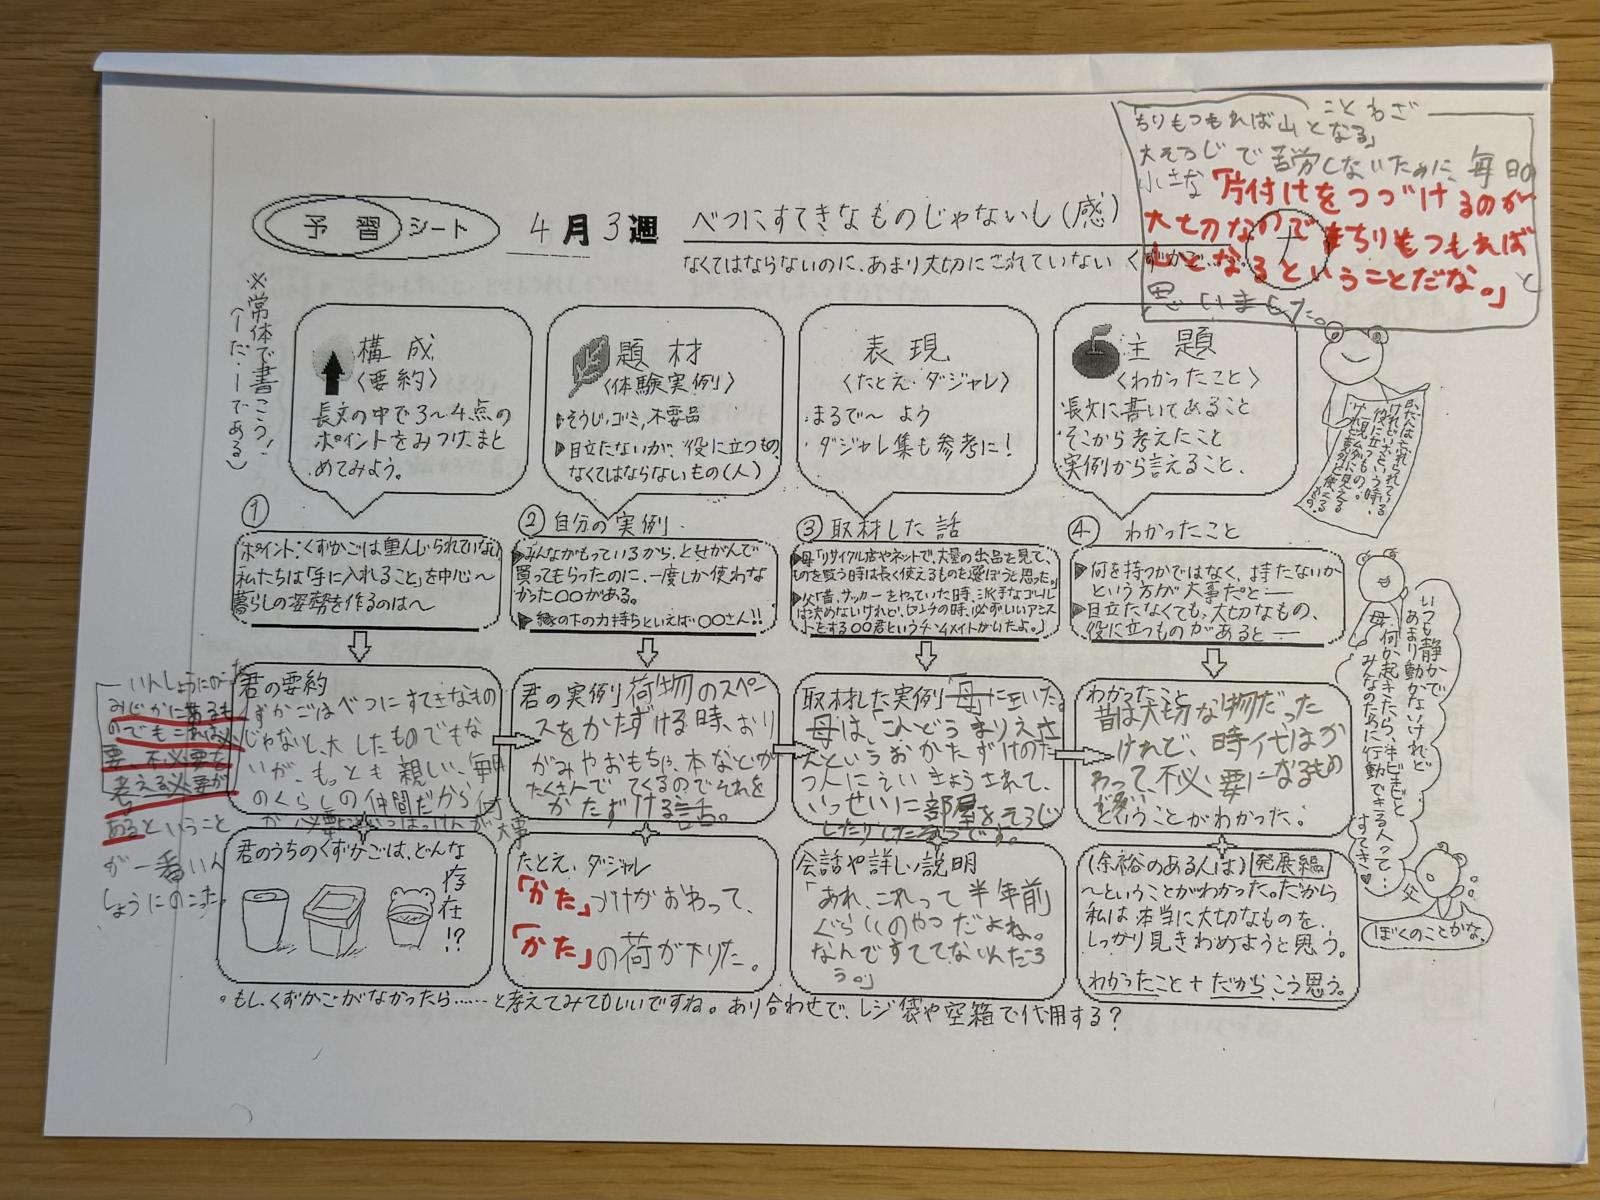 ことわざ
「ちりもつもれば山となる」
大そうじで苦労しないために、毎日の
小さな「片付けをつづけるのが
大切なのでちりもつもれば
山となるということだな。」と
思いました。
予習シート 4月3週 べつにすてきなものじゃないし(感)
なくてはならないのに、あまり大切にされていない くずかご……
※常体で書こう!
(ーだ・ーである)
構成
〈要約〉
長文の中で3〜4点の
ポイントをみつけ、まと
めてみよう。
題材
〈体験実例〉
・そうじ、ゴミ、不要品
・目立たないが、役に立つもの、
なくてはならないもの(人)
表現
〈たとえ・ダジャレ〉
・まるで〜よう
・ダジャレ集も参考に!
主題
〈わかったこと〉
・長文に書いてあること
・そこから考えたこと
・実例から言えること、
①
ポイント:くずかごは重んじられていない
私たちは「手に入れること」を中心〜
暮らしの姿勢を作るのは〜
② 自分の実例
▶みんながもっているから、とせがんで
買ってもらったのに、一度しか使わな
かった〇〇がある。
▶縁の下の力持ちといえば〇〇さん!!
③ 取材した話
▶母「リサイクル店やネットで、大量の出品を見て、
ものを買う時は長く使えるものを選ぼうと思った。」
▶父「昔、サッカーをやっていた時、派手なゴール
は決めないけれど、ピンチの時、必ずいいアシス
トをする〇〇君というチームメイトがいたよ。」
④ わかったこと
▶何を持つかではなく、持たないか
という方が大事だと──
▶目立たなくても、大切なもの、
役に立つものがあると──
いんしょうにのこった
みぢかにあるも
のでもこれは必
要、不必要を
考える必要が
あるということ
が一番いん
しょうにのこった。
君の要約
くずかごはべつにすてきなもの
じゃないし、大したものでもな
いが、もっとも親しい、毎日
のくらしの仲間だから何
が必要
君の実例 荷物のスペー
スをかたずける時、おり
がみやおもちゃ、本などが
たくさんでてくるのでそれを
かたずける話。
取材した実例「母に聞いた」
母は、「こんどうまりえさ
ん」というおかたずけのた
つ人にえいきょうされて、
いっせいに部屋をそうじ
したりしたそうです。
わかったこと
昔は大切な物だった
けれど、時代はか
わって、不必要になるもの
が多い
ということがわかった。
君のうちのくずかごは、どんな
存在!?
たとえ、ダジャレ
「かた」づけがおわって、
「かた」の荷が下りた。
会話や詳しい説明
「あれ、これって半年前
ぐらいのやつだよね。
なんですててないんだろ
う。」
(余裕のある人は)発展編
〜ということがわかった。だから
私は本当に大切なものを、
しっかり見きわめようと思う。
わかったこと+だから、こう思う。
いつも静かで
あまり動かないけれど
何か起きたら、キビキビと
みんなのために行動できる人って…
すてき♥
母
父
ぼくのことかな、
。もし、くずかごがなかったら……と考えてみてもいいですね。あり合わせで、レジ袋や空箱で代用する?